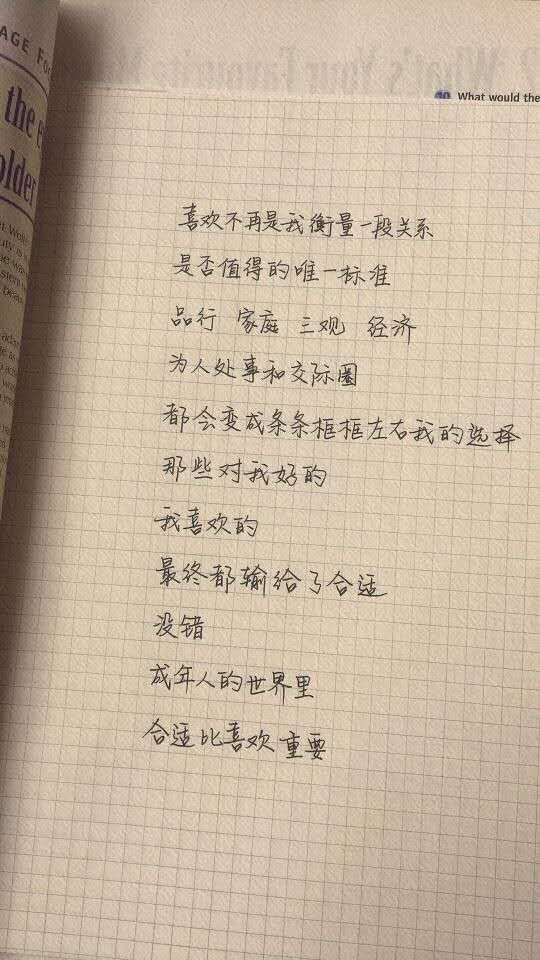 AGE Fo
the e
older
What's Your Favourite M
10 What would the
喜欢不再是我衡量一段关系
是否值得的唯一标准
品行 家庭 三观 经济
为人处事和交际圈
都会变成条条框框左右我的选择
那些对我好的
我喜欢的
最终都输给了合适
没错
成年人的世界里
合适比喜欢重要